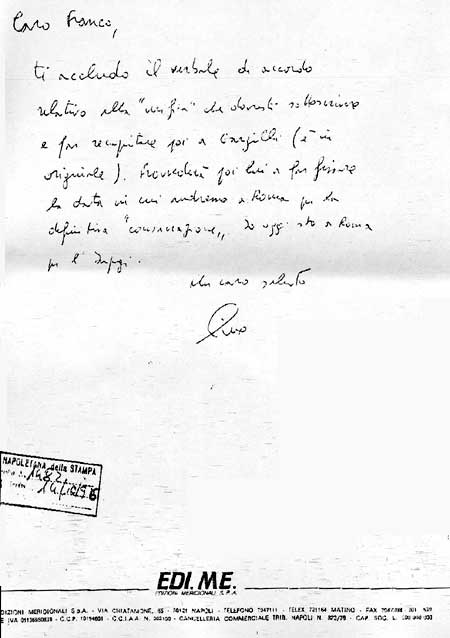 Caro Franco,
ti accludo il verbale di accordo
relativo alla "verifica" che dovresti sottoscrivere
e far recapitare poi a (è in
originale). Provvederà poi lui a far fissare
la data in cui andremo a Roma per la
definitiva "consacrazione„. Io oggi sto a Roma
per l'Inpgi.
Un caro saluto
NAPOLETANA della STAMPA
1482
EDI.ME.
EDIZIONI MERIDIONALI S.P.A.
DIZIONI MERIDIONALI S.p.A. - VIA CHIATAMONE, 65 - 80121 NAPOLI - TELEFONO - TELEX MATINO - FAX
E IVA - C.C.P. - C.C.I.A.A. N. - CANCELLERIA COMMERCIALE TRIB. NAPOLI N. - CAP. SOC. L.